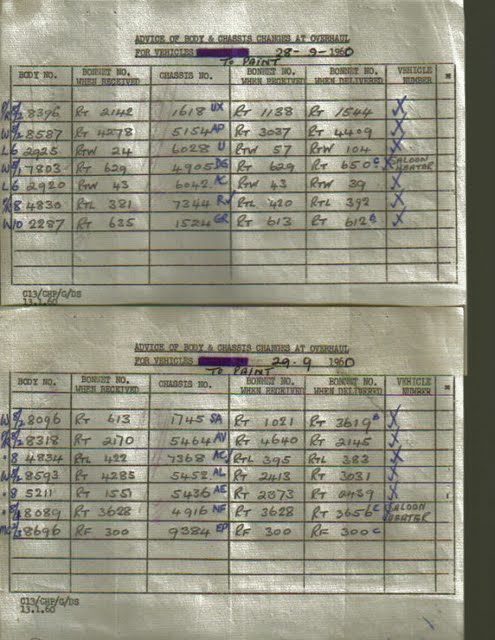 ADVICE OF BODY & CHASSIS CHANGES AT OVERHAUL
FOR VEHICLES 28-9-1960
TO PAINT
BODY NO. BONNET NO. WHEN RECEIVED CHASSIS NO. BONNET NO. WHEN RECEIVED BONNET NO. WHEN DELIVERED VEHICLE NUMBER
8396 RT 2142 1618 UX RT 1138 RT 1544 X
8587 RT 4278 5154 AP RT 3037 RT 4409 X
L6 2925 RTW 24 6028 U RTW 57 RTW 104 X
7803 RT 629 4905 DG RT 629 RT 650 C SALOON HEATER
L6 2920 RTW 43 6042 AC RTW 43 RTW 39 X
8 4830 RTL 381 7344 R RTL 420 RTL 392 X
W10 2287 RT 635 1524 GR RT 613 RT 612 B X
G13/CHP/G/DS
13.1.60
ADVICE OF BODY & CHASSIS CHANGES AT OVERHAUL
FOR VEHICLES 29-9 1960
TO PAINT
BODY NO. BONNET NO. WHEN RECEIVED CHASSIS NO. BONNET NO. WHEN RECEIVED BONNET NO. WHEN DELIVERED VEHICLE NUMBER
8096 RT 613 1745 SA RT 1021 RT 3619 X
8318 RT 2170 5464 AV RT 4640 RT 2145 X
8 4834 RTL 422 7368 AC RTL 395 RTL 383 X
8593 RT 4285 5452 AL RT 2413 RT 3031 X
8 5211 RT 1551 5436 AE RT 2373 RT 2439 X
8089 RT 3628 4916 NF RT 3628 RT 3656 C SALOON HEATER
8696 RF 300 9384 EP RF 300 RF 300 C
G13/CHP/G/DS
13.1.60